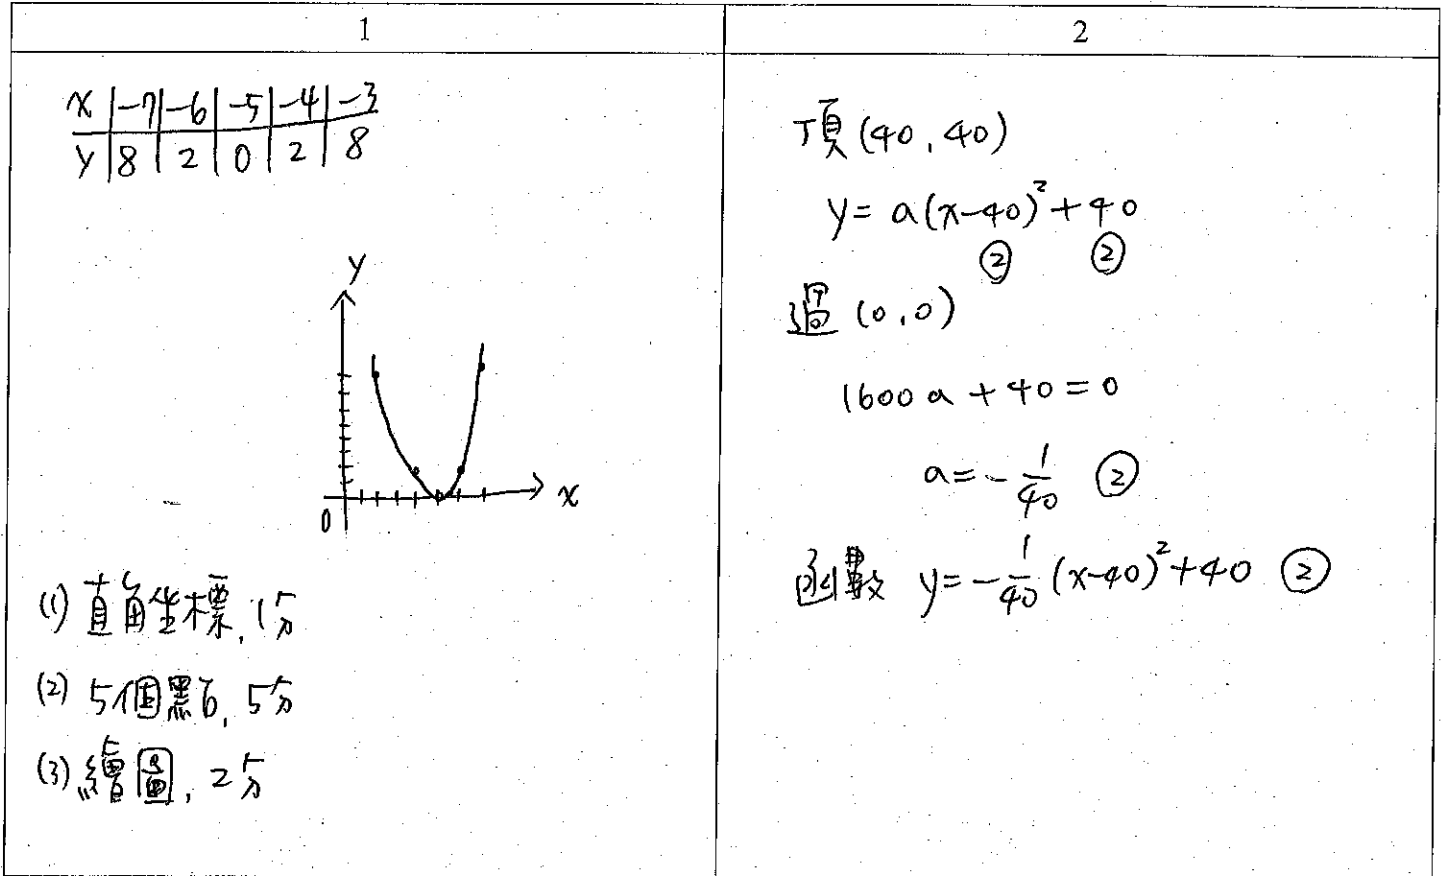 1
x | -7 | -6 | -5 | -4 | -3
y | 8 | 2 | 0 | 2 | 8
y
x
0
(1) 直角坐標, 1分
(2) 5個點, 5分
(3) 繪圖, 2分
2
頂 (40, 40)
y = a(x-40)² + 40
② ②
過 (0, 0)
1600a + 40 = 0
a = -1/40 ②
函數 y = -1/40 (x-40)² + 40 ②